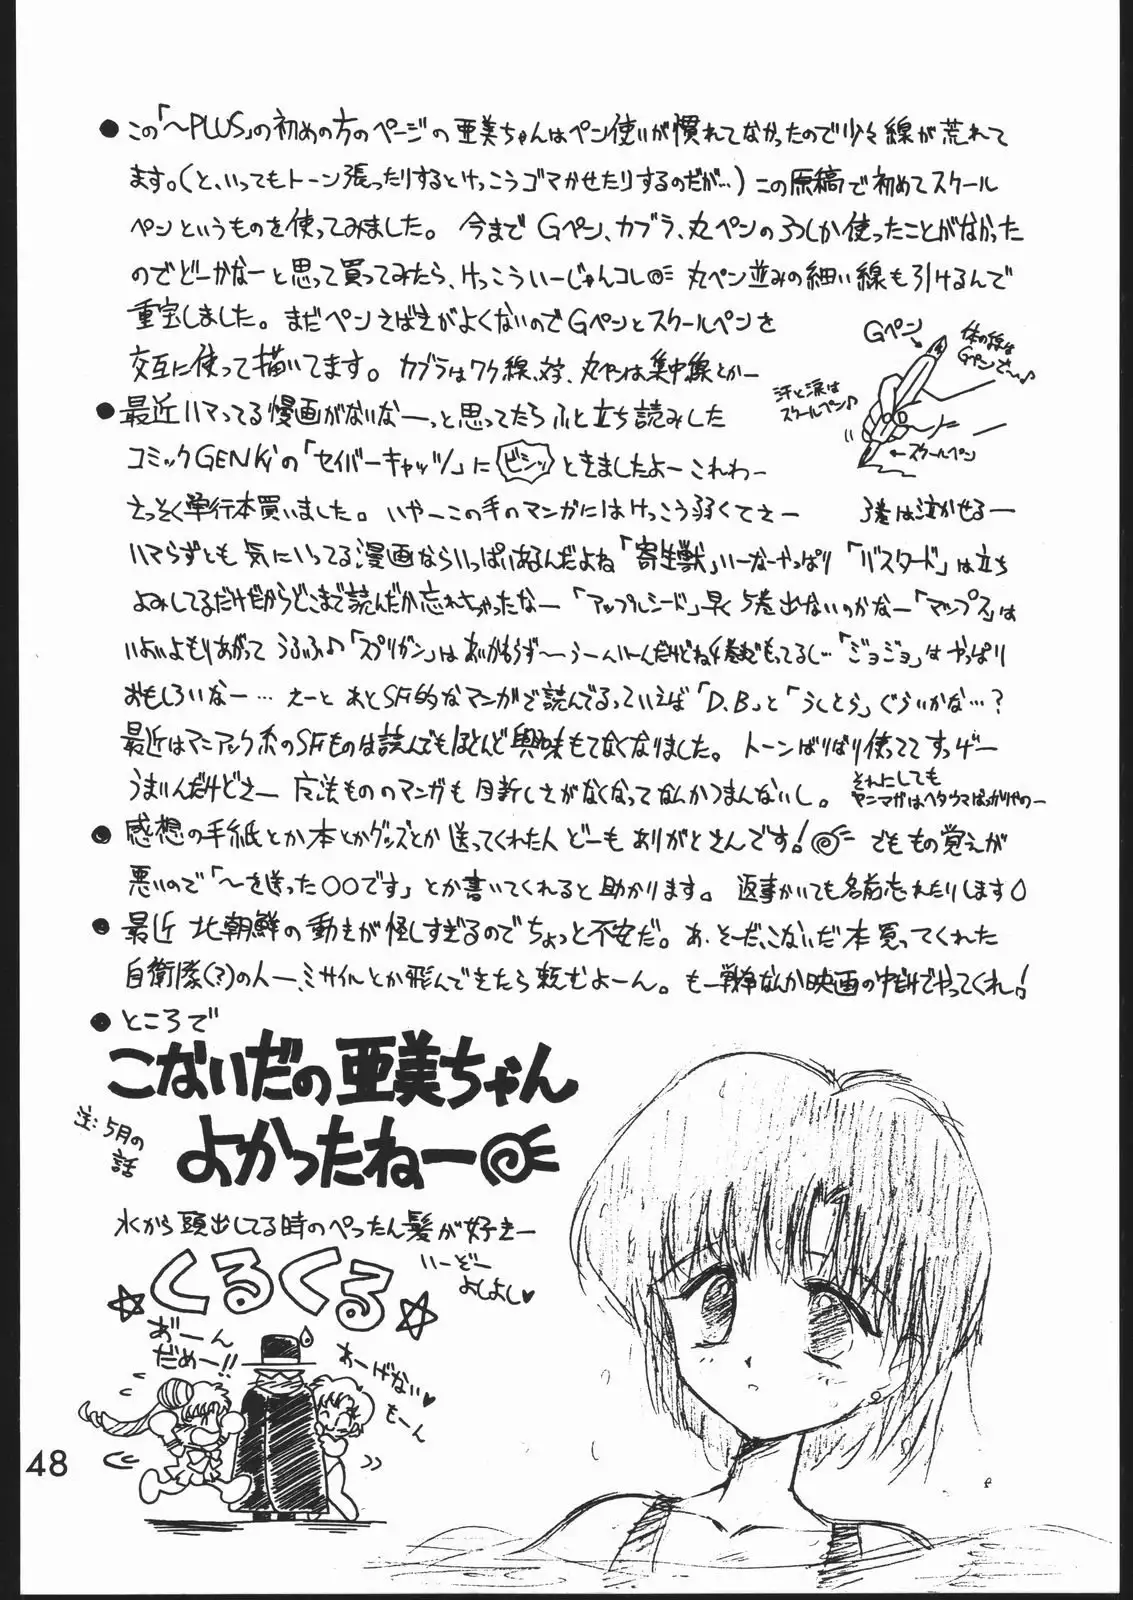 ●この「～PLUS」の初めの方のページの亜美ちゃんはペン使いが慣れてなかったので少々線が荒れて
ます。(と、いってもトーン張ったりするとけっこうゴマかせたりするのだが…)この原稿で初めてスクール
ペンというものを使ってみました。今までGペン、カブラ、丸ペンの3つしか使ったことがなかった
のでどーかなーと思って買ってみたら、けっこういーじゃんコレ 丸ペン並みの細い線も引けるんで
重宝しました。まだペンさばきがよくないのでGペンとスクールペンを
交互に使って描いてます。カブラはワク線、対、丸ペンは集中線とかー
Gペン
体の線は
Gペンでー♪
汗と涙は
スクールペン♪
←スクールペン
●最近ハマってる漫画がないなーっと思ってたらふと立ち読みした
コミックGENKiの「セイバーキャッツ」に ビシッ ときましたよー これわー
さっそく単行本買いました。いやーこの手のマンガにはけっこう弱くてさー 3巻は泣かせるー
ハマらずとも気にいってる漫画ならいっぱいあるんだよね「寄生獣」いーなーやっぱり「バスタード」は立ち
よみしてるだけだからどこまで読んだか忘れちゃったなー「アップルシード」早く5巻出ないのかなー「マップス」は
いよいよもりあがって うふふ♪「スプリガン」はあいかわらず～うーんいーんだけどね 巻までもってるし…「ジョジョ」はやっぱり
おもしろいなー…えーと あとSF的なマンガで読んでるっていえば「D.B」と「うしとら」ぐらいかな…?
最近はマニアック系のSFものは読んでもほとんど興味もてなくなりました。トーンばりばり使っててすっげー
うまいんだけどさー 魔法もののマンガも目新しさがなくなってなんかつまんないし。
それにしても
ヤンマガはヘタウマばっかりやのー
●感想の手紙とか本とかグッズとか送ってくれた人どーもありがとさんです! でももの覚えが
悪いので「～を送った○○です」とか書いてくれると助かります。返事かいても名前忘れたりします
●最近 北朝鮮の動きが怪しすぎるのでちょっと不安だ。あ、そーだ、こないだ本買ってくれた
自衛隊(?)の人ー、ミサイルとか飛んできたら頼むよーん。もー戦争なんか映画の中だけでやってくれ!
●ところで
こないだの亜美ちゃん
よかったねー
注:5月の
話
水から頭出してる時のぺったん髪が好きー
くるくる
いーどー
よしよし♥
あ゛ーん
だめー!!
あーげない♥
もーん
48